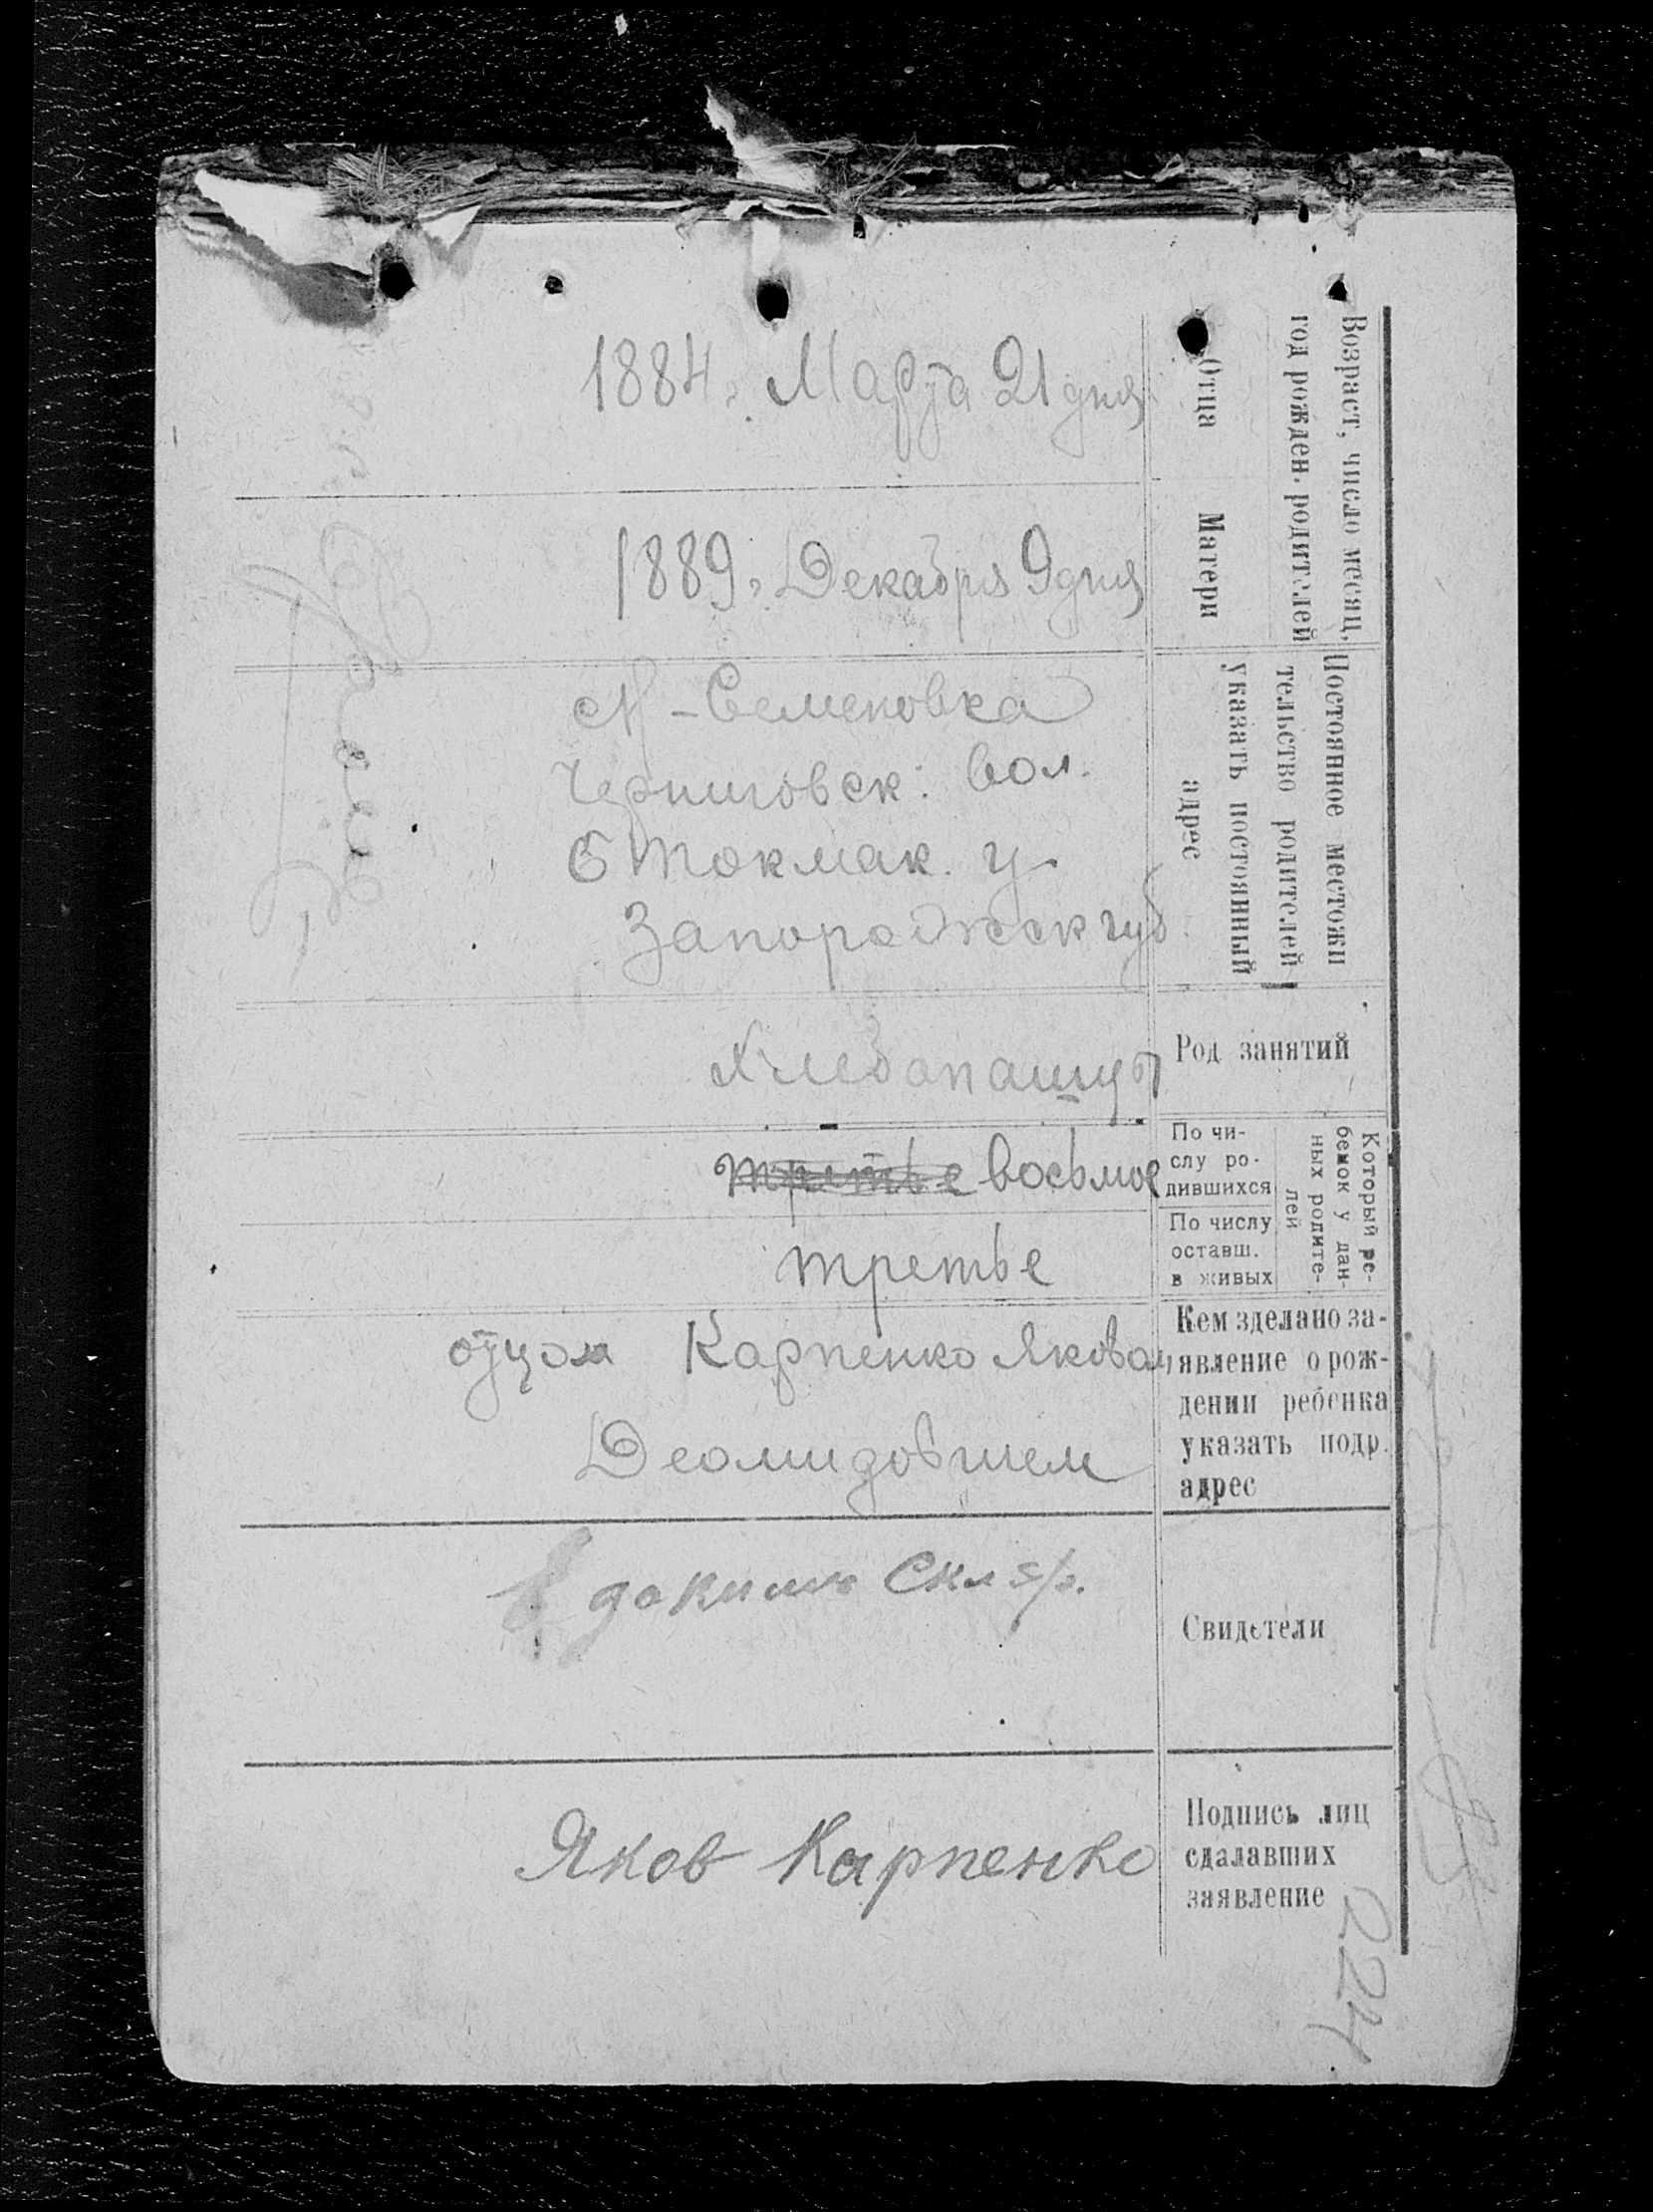 Возраст, число месяц,
год рожден. родителей
Отца
1884 г. Марта 21 дня
Матери
1889 г. Декабря 9 дня
Постоянное местожи
тельство родителей
указать постоянный
адрес
Н-Семеновка
Черниговск: вол.
Б Токмак. у.
Запорожск губ.
Род занятий
Хлебопашцы
Который ре-
бенок у дан-
ных родите-
лей
По чи-
слу ро-
дившихся
третье восьмое
По числу
оставш.
в живых
третье
Кем зделано за-
явление о рож-
дении ребенка
указать подр.
адрес
отцом Карпенко Яковом
Деомидовичем
Свидетели
Скляр.
Подпись лиц
сдалавших
заявление
Яков Карпенко
224